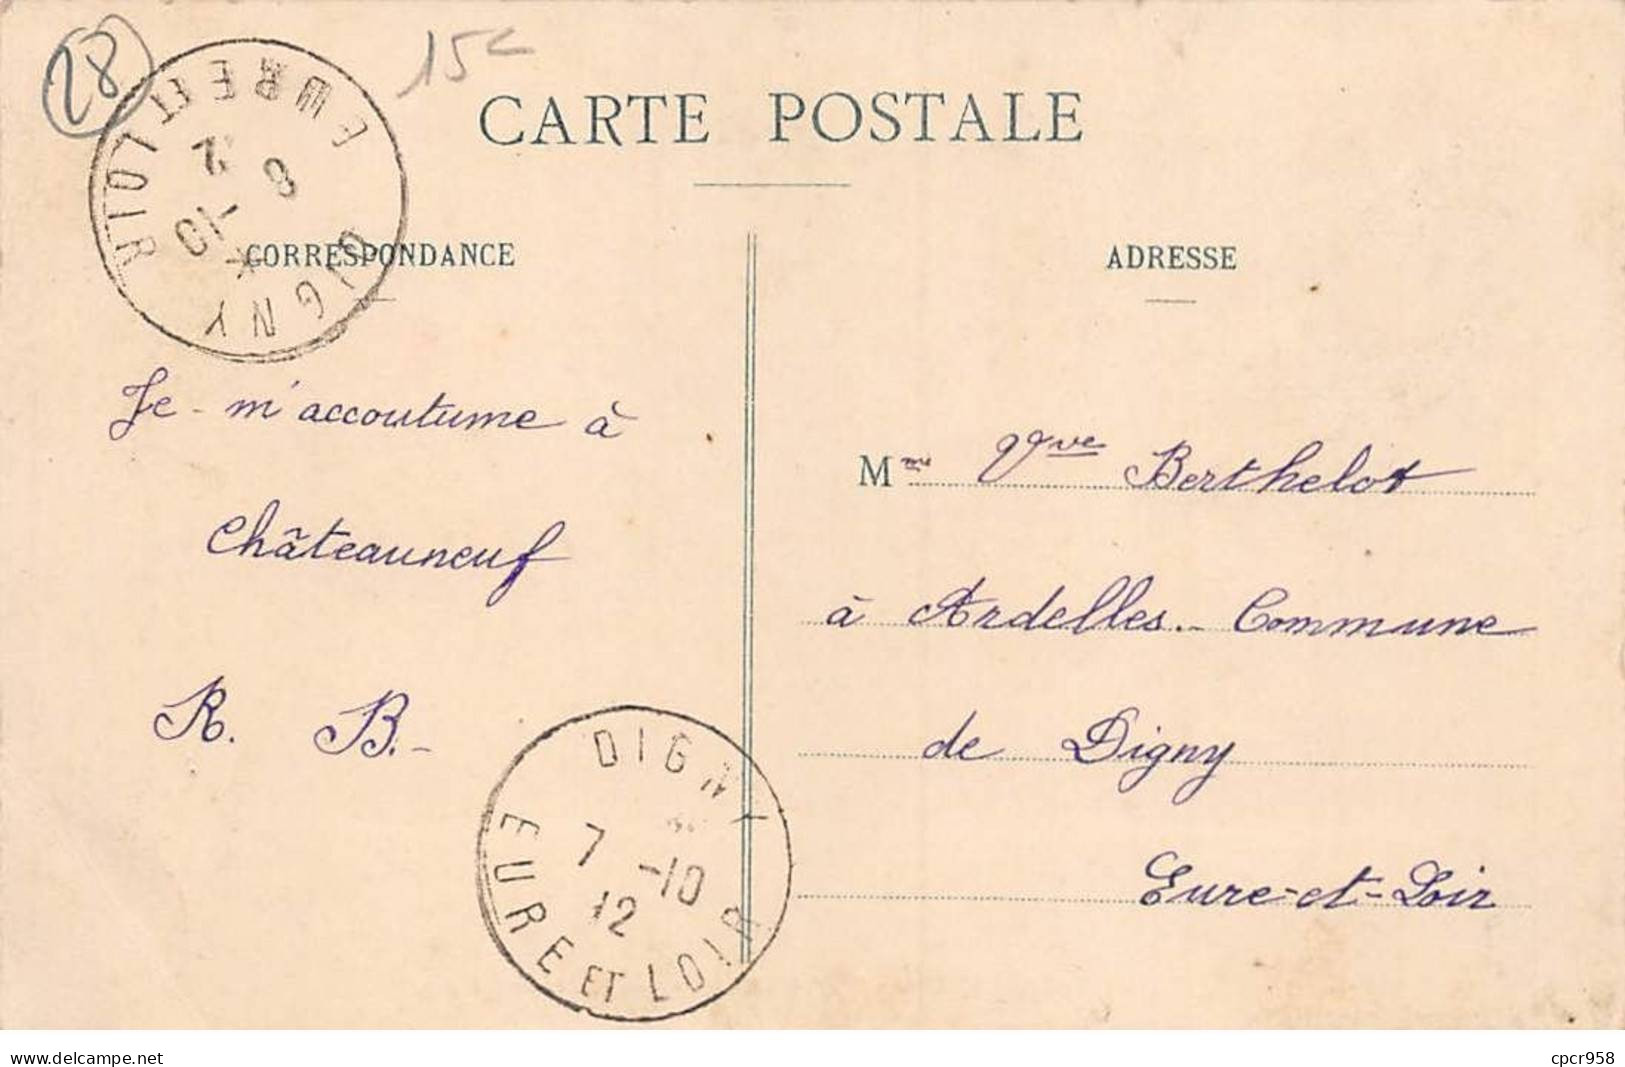 28
15c
CARTE POSTALE
EURE ET LOIR
8 -10
12
DIGNY
CORRESPONDANCE
ADRESSE
Je m'accoutume à
Châteauneuf
R. B.-
DIGNY
7 -10
12
EURE ET LOIR
Mme Vve Berthelot
à Ardelles.- Commune
de Digny
Eure-et-Loir
www.delcampe.net
cpcr958